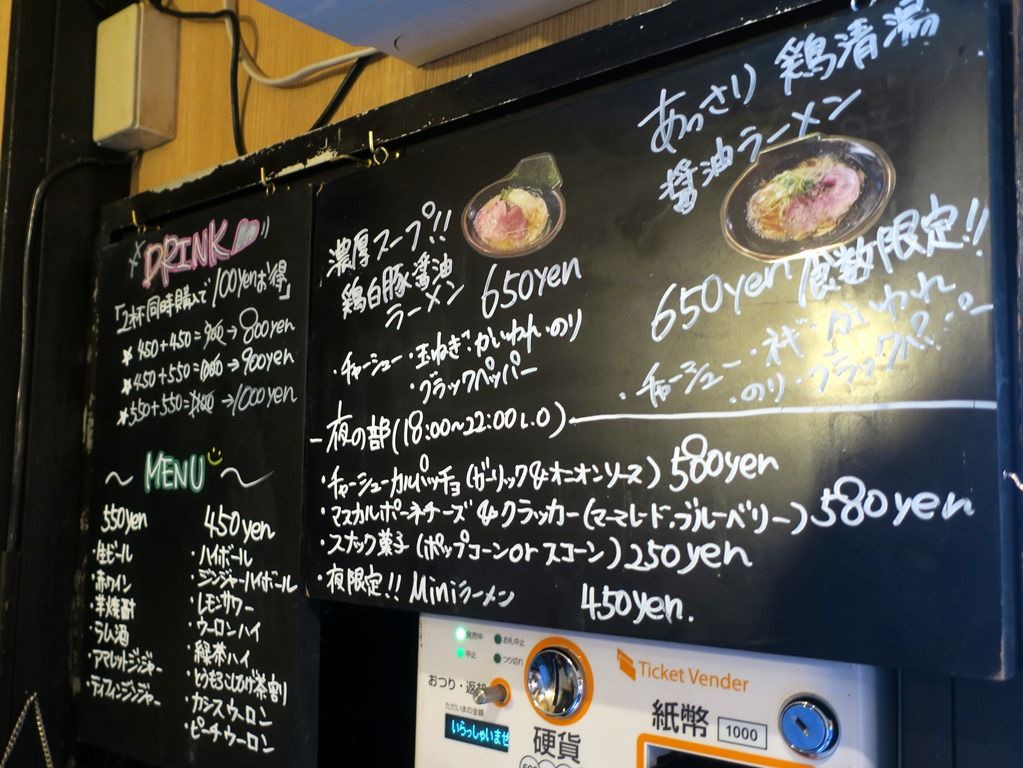 DRINK
「2杯同時購入で100yenお得」
★450+450=900→800yen
★450+550=1000→900yen
★550+550=1100→1000yen
〜MENU〜
550yen
・生ビール
・赤ワイン
・芋焼酎
・ラム酒
・アマレットジンジャー
・ティフィンジンジャー
450yen
・ハイボール
・ジンジャーハイボール
・レモンサワー
・ウーロンハイ
・緑茶ハイ
・とうもろこしひげ茶割
・カシスウーロン
・ピーチウーロン
濃厚スープ!!
鶏白豚醤油
ラーメン 650yen
・チャーシュー・玉ねぎ・かいわれ・のり
・ブラックペッパー
あっさり鶏清湯
醤油ラーメン
650yen 食数限定!!
・チャーシュー・ネギ・かいわれ
・のり・ブラックペッパー
ー夜の部(18:00〜22:00L.O)
・チャーシューカルパッチョ(ガーリック&オニオンソース)580yen
・マスカルポーネチーズ&クラッカー(マーマレード・ブルーベリー)580yen
・スナック菓子(ポップコーンorスコーン)250yen
・夜限定!! Miniラーメン 450yen.
発売中 お札中止
中止 つり切れ
おつり・返却
ただいまの金額
いらっしゃいませ
硬貨
Ticket Vender
紙幣 1000